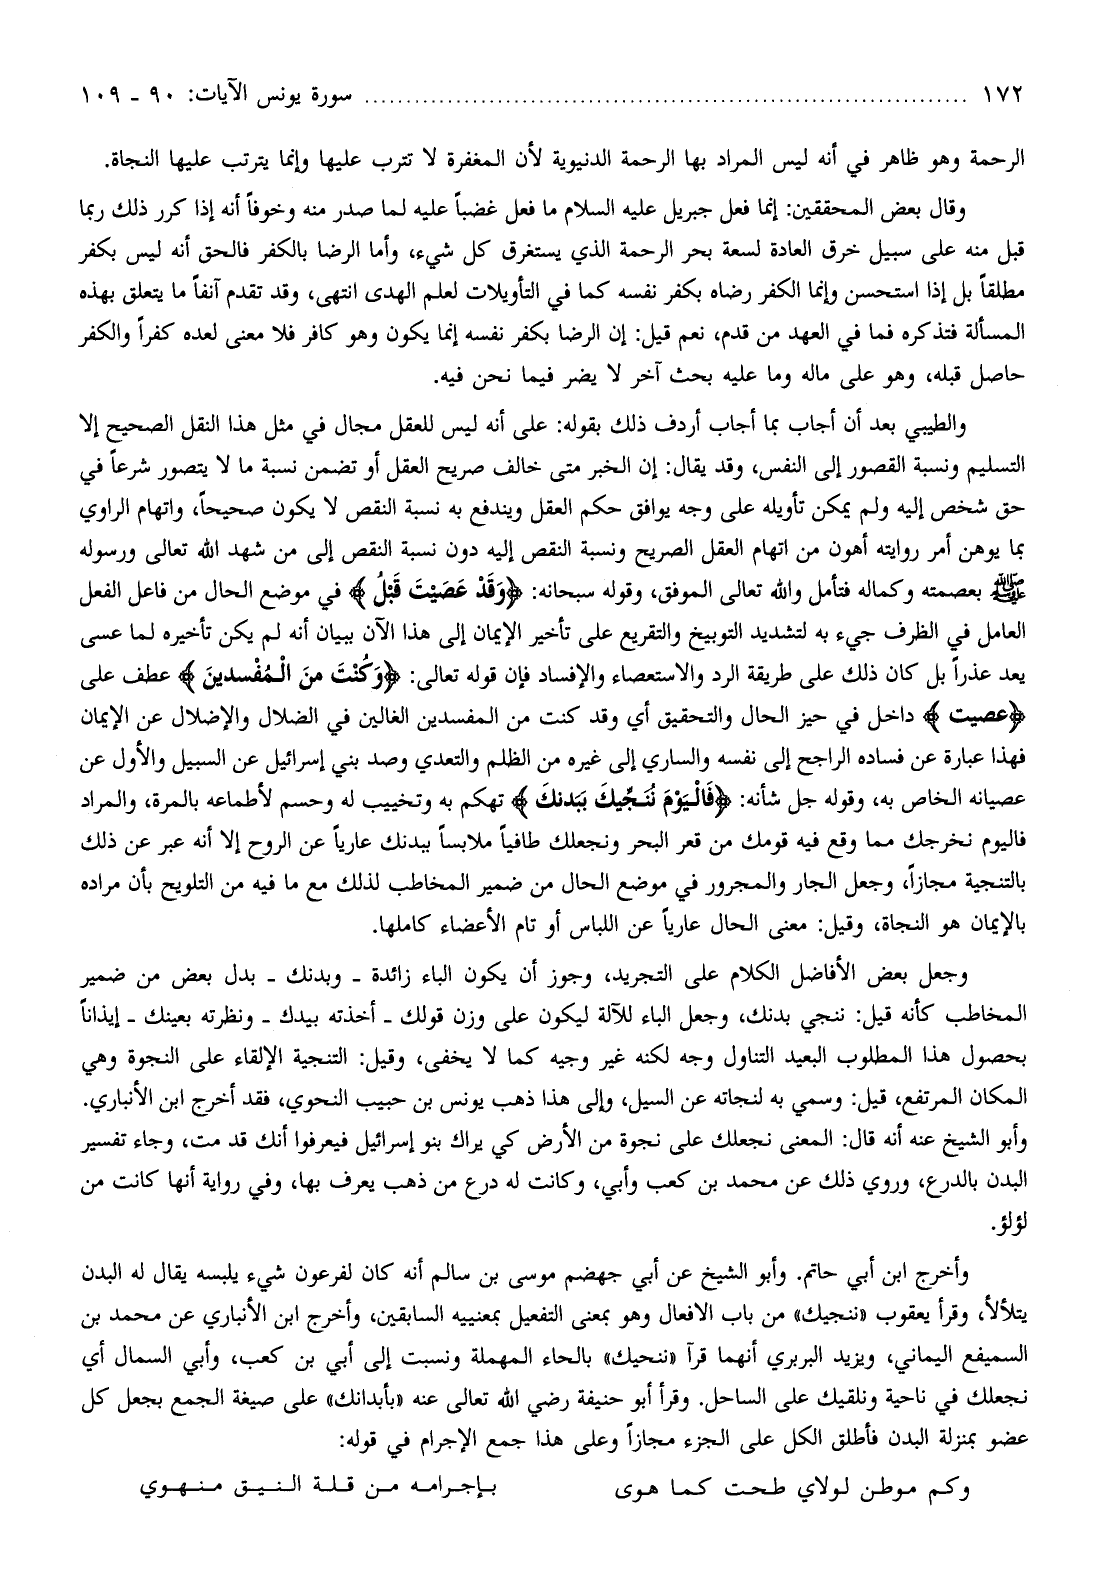 ١٧٢ ........................................................................ سورة يونس الآيات: ٩٠ - ١٠٩
الرحمة وهو ظاهر في أنه ليس المراد بها الرحمة الدنيوية لأن المغفرة لا تترب عليها وإنما يترتب عليها النجاة.
وقال بعض المحققين: إنما فعل جبريل عليه السلام ما فعل غضباً عليه لما صدر منه وخوفاً أنه إذا كرر ذلك ربما
قبل منه على سبيل خرق العادة لسعة بحر الرحمة الذي يستغرق كل شيء، وأما الرضا بالكفر فالحق أنه ليس بكفر
مطلقاً بل إذا استحسن وإنما الكفر رضاه بكفر نفسه كما في التأويلات لعلم الهدى انتهى، وقد تقدم آنفاً ما يتعلق بهذه
المسألة فتذكره فما في العهد من قدم، نعم قيل: إن الرضا بكفر نفسه إنما يكون وهو كافر فلا معنى لعده كفراً والكفر
حاصل قبله، وهو على ماله وما عليه بحث آخر لا يضر فيما نحن فيه.
والطيبي بعد أن أجاب بما أجاب أردف ذلك بقوله: على أنه ليس للعقل مجال في مثل هذا النقل الصحيح إلا
التسليم ونسبة القصور إلى النفس، وقد يقال: إن الخبر متى خالف صريح العقل أو تضمن نسبة ما لا يتصور شرعاً في
حق شخص إليه ولم يمكن تأويله على وجه يوافق حكم العقل ويندفع به نسبة النقص لا يكون صحيحاً، واتهام الراوي
بما يوهن أمر روايته أهون من اتهام العقل الصريح ونسبة النقص إليه دون نسبة النقص إلى من شهد الله تعالى ورسوله
ﷺ بعصمته وكماله فتأمل والله تعالى الموفق، وقوله سبحانه: ﴿وَقَدْ عَصَيْتَ قَبْلُ﴾ في موضع الحال من فاعل الفعل
العامل في الظرف جيء به لتشديد التوبيخ والتقريع على تأخير الإيمان إلى هذا الآن ببيان أنه لم يكن تأخيره لما عسى
يعد عذراً بل كان ذلك على طريقة الرد والاستعصاء والإفساد فإن قوله تعالى: ﴿وَكُنْتَ منَ الْمُفْسدينَ﴾ عطف على
﴿عصيت﴾ داخل في حيز الحال والتحقيق أي وقد كنت من المفسدين الغالين في الضلال والإضلال عن الإيمان
فهذا عبارة عن فساده الراجح إلى نفسه والساري إلى غيره من الظلم والتعدي وصد بني إسرائيل عن السبيل والأول عن
عصيانه الخاص به، وقوله جل شأنه: ﴿فَالْيَوْمَ نُنَجِّيكَ ببَدنكَ﴾ تهكم به وتخييب له وحسم لأطماعه بالمرة، والمراد
فاليوم نخرجك مما وقع فيه قومك من قعر البحر ونجعلك طافياً ملابساً ببدنك عارياً عن الروح إلا أنه عبر عن ذلك
بالتنجية مجازاً، وجعل الجار والمجرور في موضع الحال من ضمير المخاطب لذلك مع ما فيه من التلويح بأن مراده
بالإيمان هو النجاة، وقيل: معنى الحال عارياً عن اللباس أو تام الأعضاء كاملها.
وجعل بعض الأفاضل الكلام على التجريد، وجوز أن يكون الباء زائدة - وبدنك - بدل بعض من ضمير
المخاطب كأنه قيل: ننجي بدنك، وجعل الباء للآلة ليكون على وزن قولك - أخذته بيدك - ونظرته بعينك - إيذاناً
بحصول هذا المطلوب البعيد التناول وجه لكنه غير وجيه كما لا يخفى، وقيل: التنجية الإلقاء على النجوة وهي
المكان المرتفع، قيل: وسمي به لنجاته عن السيل، وإلى هذا ذهب يونس بن حبيب النحوي، فقد أخرج ابن الأنباري.
وأبو الشيخ عنه أنه قال: المعنى نجعلك على نجوة من الأرض كي يراك بنو إسرائيل فيعرفوا أنك قد مت، وجاء تفسير
البدن بالدرع، وروي ذلك عن محمد بن كعب وأبي، وكانت له درع من ذهب يعرف بها، وفي رواية أنها كانت من
لؤلؤ.
وأخرج ابن أبي حاتم. وأبو الشيخ عن أبي جهضم موسى بن سالم أنه كان لفرعون شيء يلبسه يقال له البدن
يتلألأ، وقرأ يعقوب «ننجيك» من باب الافعال وهو بمعنى التفعيل بمعنييه السابقين، وأخرج ابن الأنباري عن محمد بن
السميفع اليماني، ويزيد البربري أنهما قرآ «ننحيك» بالحاء المهملة ونسبت إلى أبي بن كعب، وأبي السمال أي
نجعلك في ناحية ونلقيك على الساحل. وقرأ أبو حنيفة رضي الله تعالى عنه «بأبدانك» على صيغة الجمع بجعل كل
عضو بمنزلة البدن فأطلق الكل على الجزء مجازاً وعلى هذا جمع الإجرام في قوله:
وكم موطن لولاي طحت كما هوى بإجرامه من قلة النيق منهوي